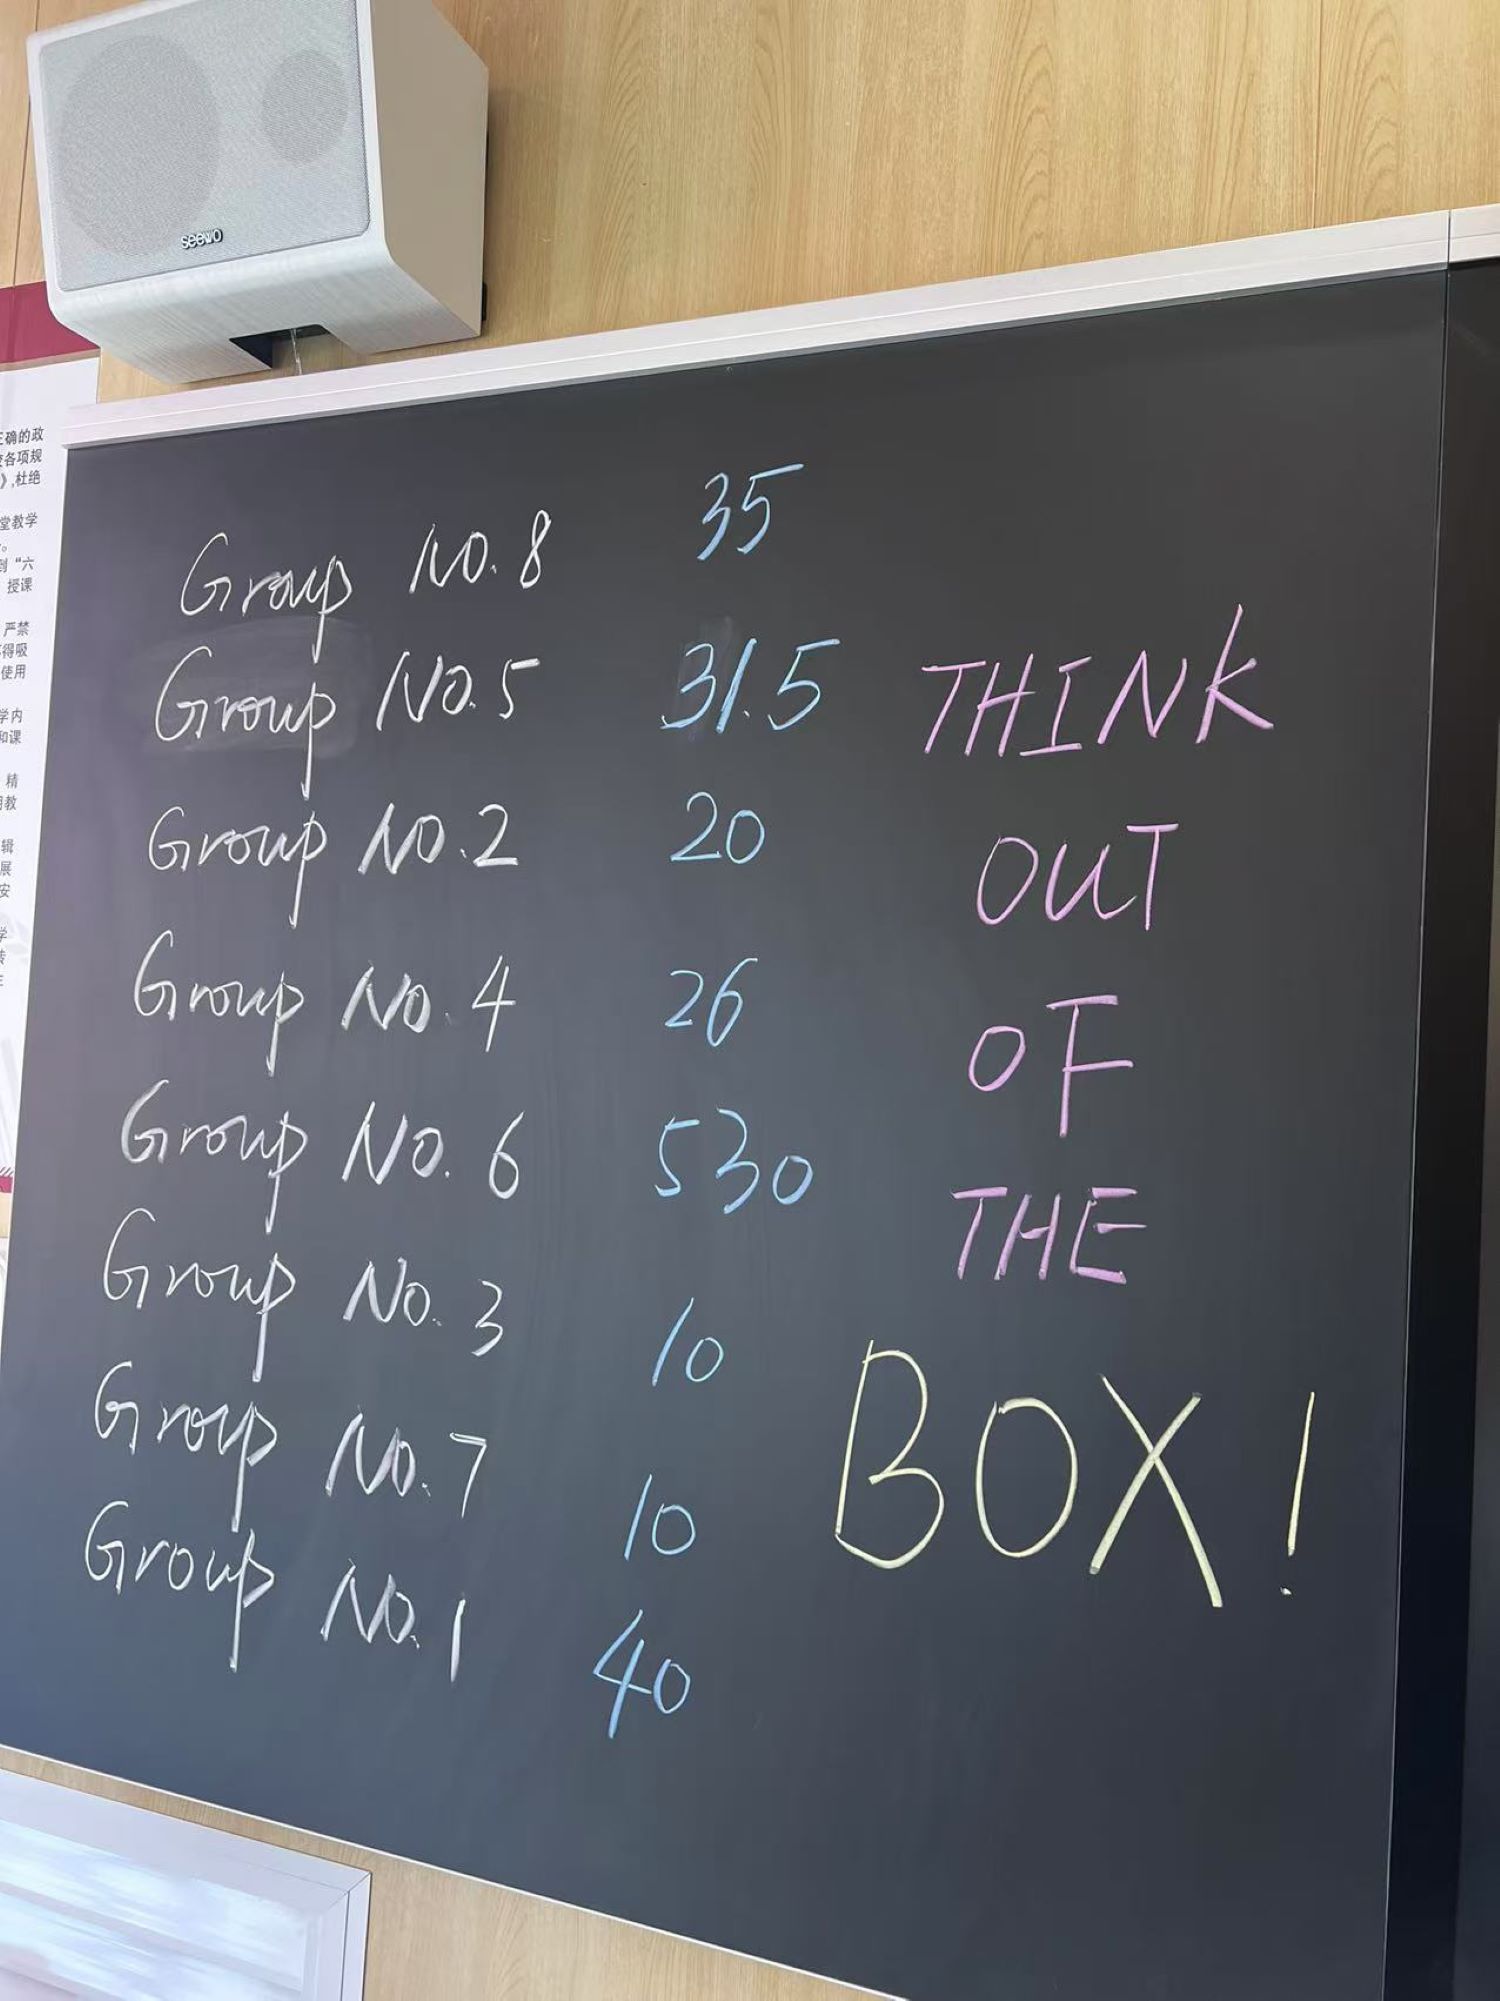 seewo
正确的政
各项规
》,杜绝
堂教学
。
到“六
授课
严禁
得吸
使用
学内
和课
精
教
辑
展
安
学
Group NO.8 35
Group NO.5 31.5
Group NO.2 20
Group NO.4 26
Group NO.6 530
Group NO.3 10
Group NO.7 10
Group NO.1 40
THINK
OUT
OF
THE
BOX!